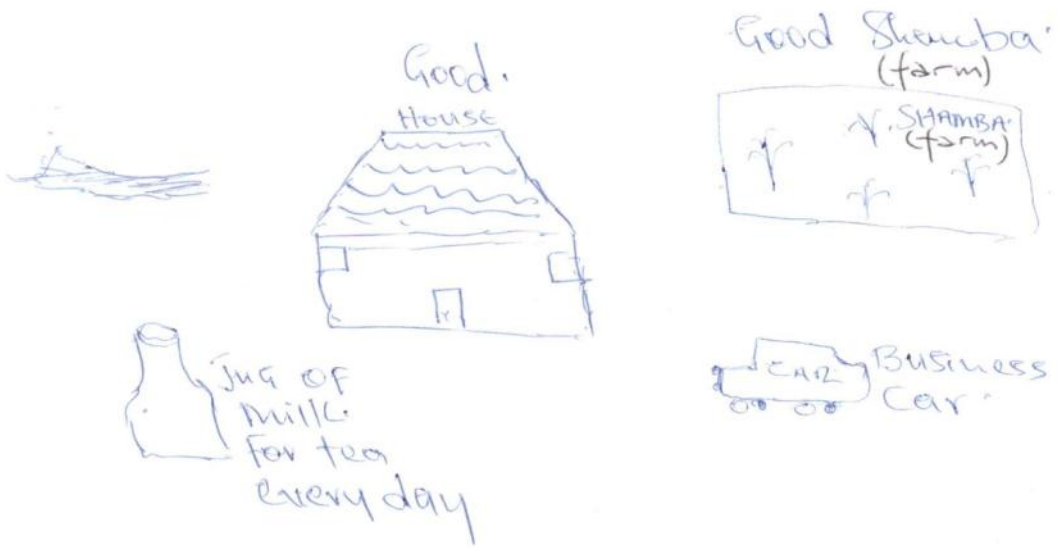 Good.
HOUSE
Good Shamba.
(farm)
SHAMBA.
(farm)
Jug OF
milk.
For tea
every day
CAR
Business
Car.